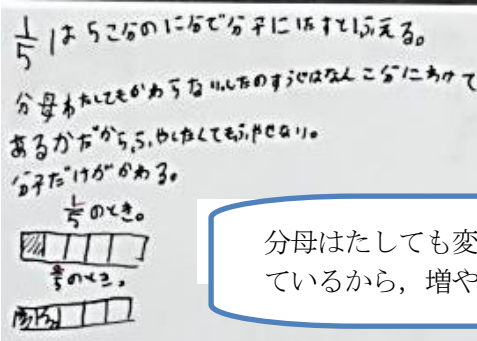 1/5は5こ分の1こ分で分子にたすとふえる。
分母わたしてもかわらない。したのすうじはなんこ分にわけて
あるかだから、ふやしたくてもふやせない。
分子だけがかわる。
1/5のとき。
2/5のとき。
分母はたしても変
ているから，増や